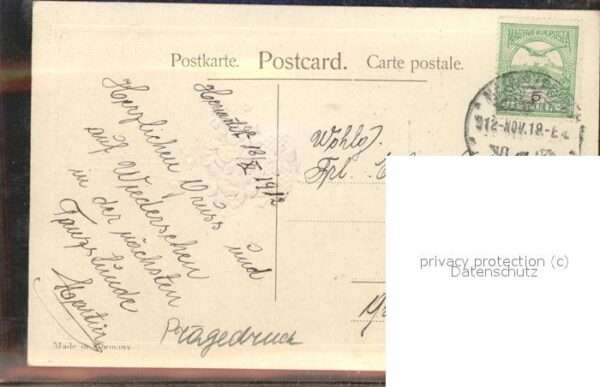 Postkarte. Postcard. Carte postale.
MAGYAR KIR. POSTA
912-NOV. 18-E
Herzlichen Gruss und
auf Wiedersehen
in der nächsten
Tanzstunde
1912
Wohlg.
Frl.
Prägedruck
Made in Germany
privacy protection (c)
Datenschutz